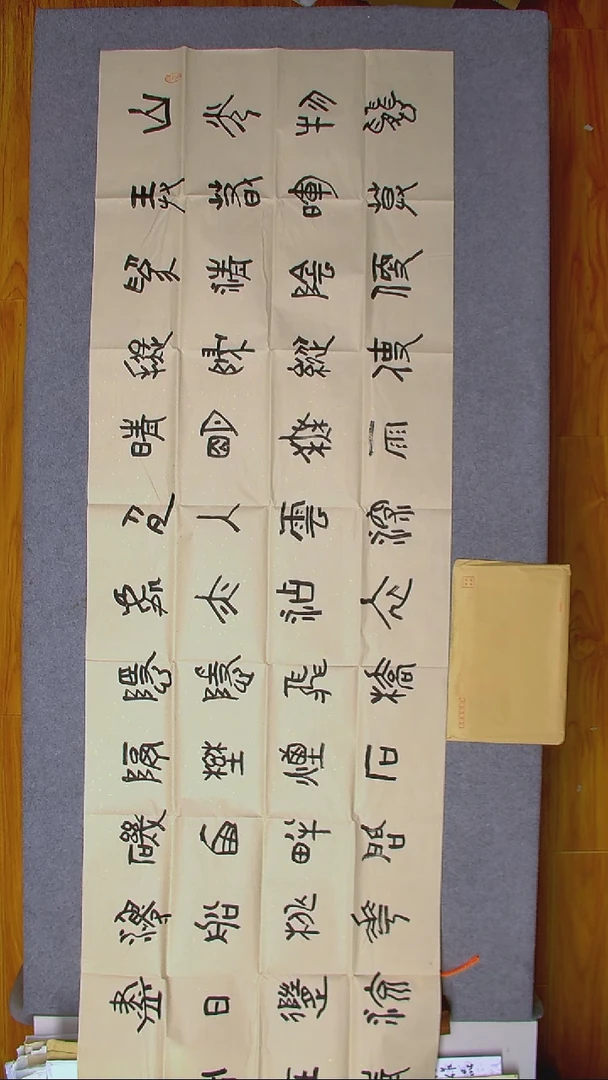 山光物態
弄春暉莫
為輕陰便
擬歸縱使
晴明無雨
色入雲深
處亦沾衣
隱隱飛橋
隔野煙石
磯西畔問
漁船桃花
盡日隨流